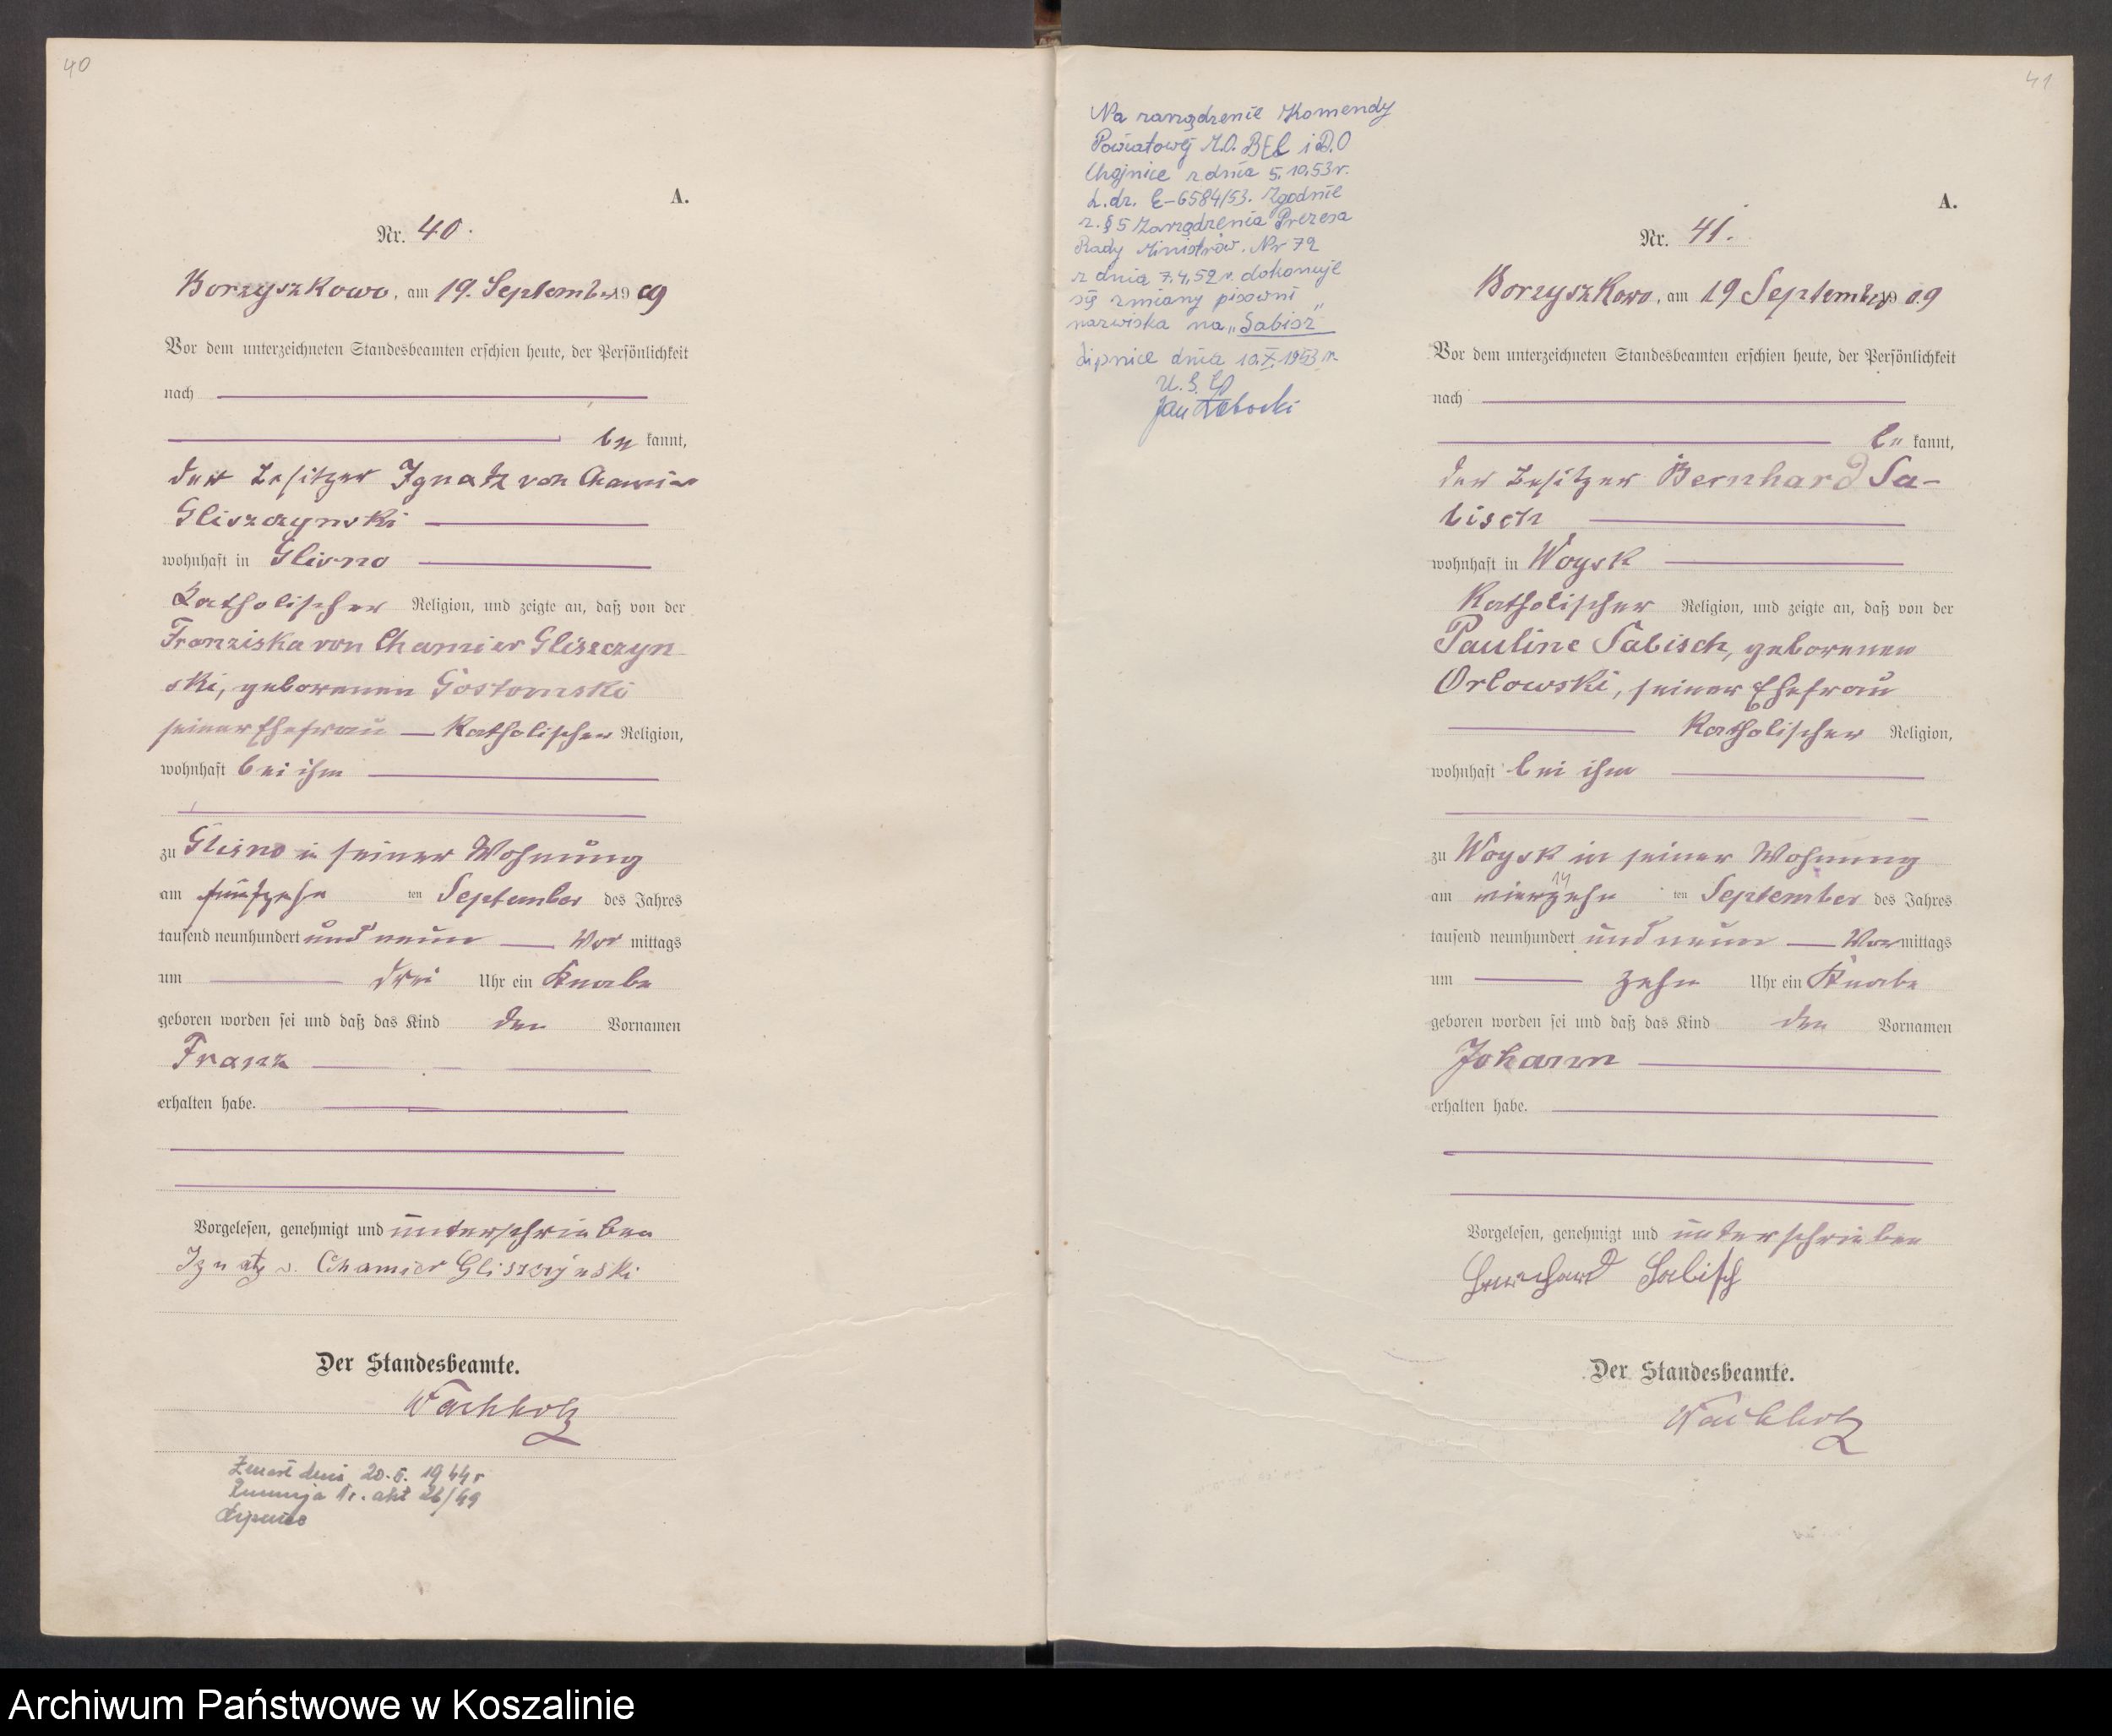 40
A.
Nr. 40.
Borzyszkowo, am 19. September 1909
Vor dem unterzeichneten Standesbeamten erschien heute, der Persönlichkeit
nach
be kannt,
der Besitzer Ignatz von Chamier
Gliszczynski
wohnhaft in Glisno
Katholischer Religion, und zeigte an, daß von der
Franziska von Chamier Gliszczyn
ski, geborenen Gostomski
seiner Ehefrau — Katholischer Religion,
wohnhaft bei ihm
zu Glisno in seiner Wohnung
am fünfzehn ten September des Jahres
tausend neunhundert und neun — Vor mittags
um drei Uhr ein Knabe
geboren worden sei und daß das Kind den Vornamen
Franz
erhalten habe.
Vorgelesen, genehmigt und unterschrieben
Ignatz v. Chamier Gliszczynski
Der Standesbeamte.
Wachholz
dnia 20. 1944 r
akt 26/49
Lipnica
41
Na zarządzenie Komendy
Powiatowej M.O. BEL i D.O
Chojnice z dnia 5.10.53 r.
L.dz. E-6584/53. Zgodnie
z § 5 Zarządzenia Prezesa
Rady Ministrów Nr 72
z dnia 7.4.52 r. dokonuje
się zmiany pisowni
nazwiska na „Sabisz"
Lipnica dnia 10.X.1953 r.
U.S.C
Jan
A.
Nr. 41.
Borzyszkowo, am 19 September 1909
Vor dem unterzeichneten Standesbeamten erschien heute, der Persönlichkeit
nach
be kannt,
der Besitzer Bernhard Sa-
bisch
wohnhaft in Woysk
Katholischer Religion, und zeigte an, daß von der
Pauline Sabisch, geborenen
Orlowski, seiner Ehefrau
Katholischer Religion,
wohnhaft bei ihm
zu Woysk in seiner Wohnung
14
am vierzehn ten September des Jahres
tausend neunhundert und neun — Vor mittags
um zehn Uhr ein Knabe
geboren worden sei und daß das Kind den Vornamen
Johann
erhalten habe.
Vorgelesen, genehmigt und unterschrieben
Bernhard Sabisch
Der Standesbeamte.
Wachholz
Archiwum Państwowe w Koszalinie